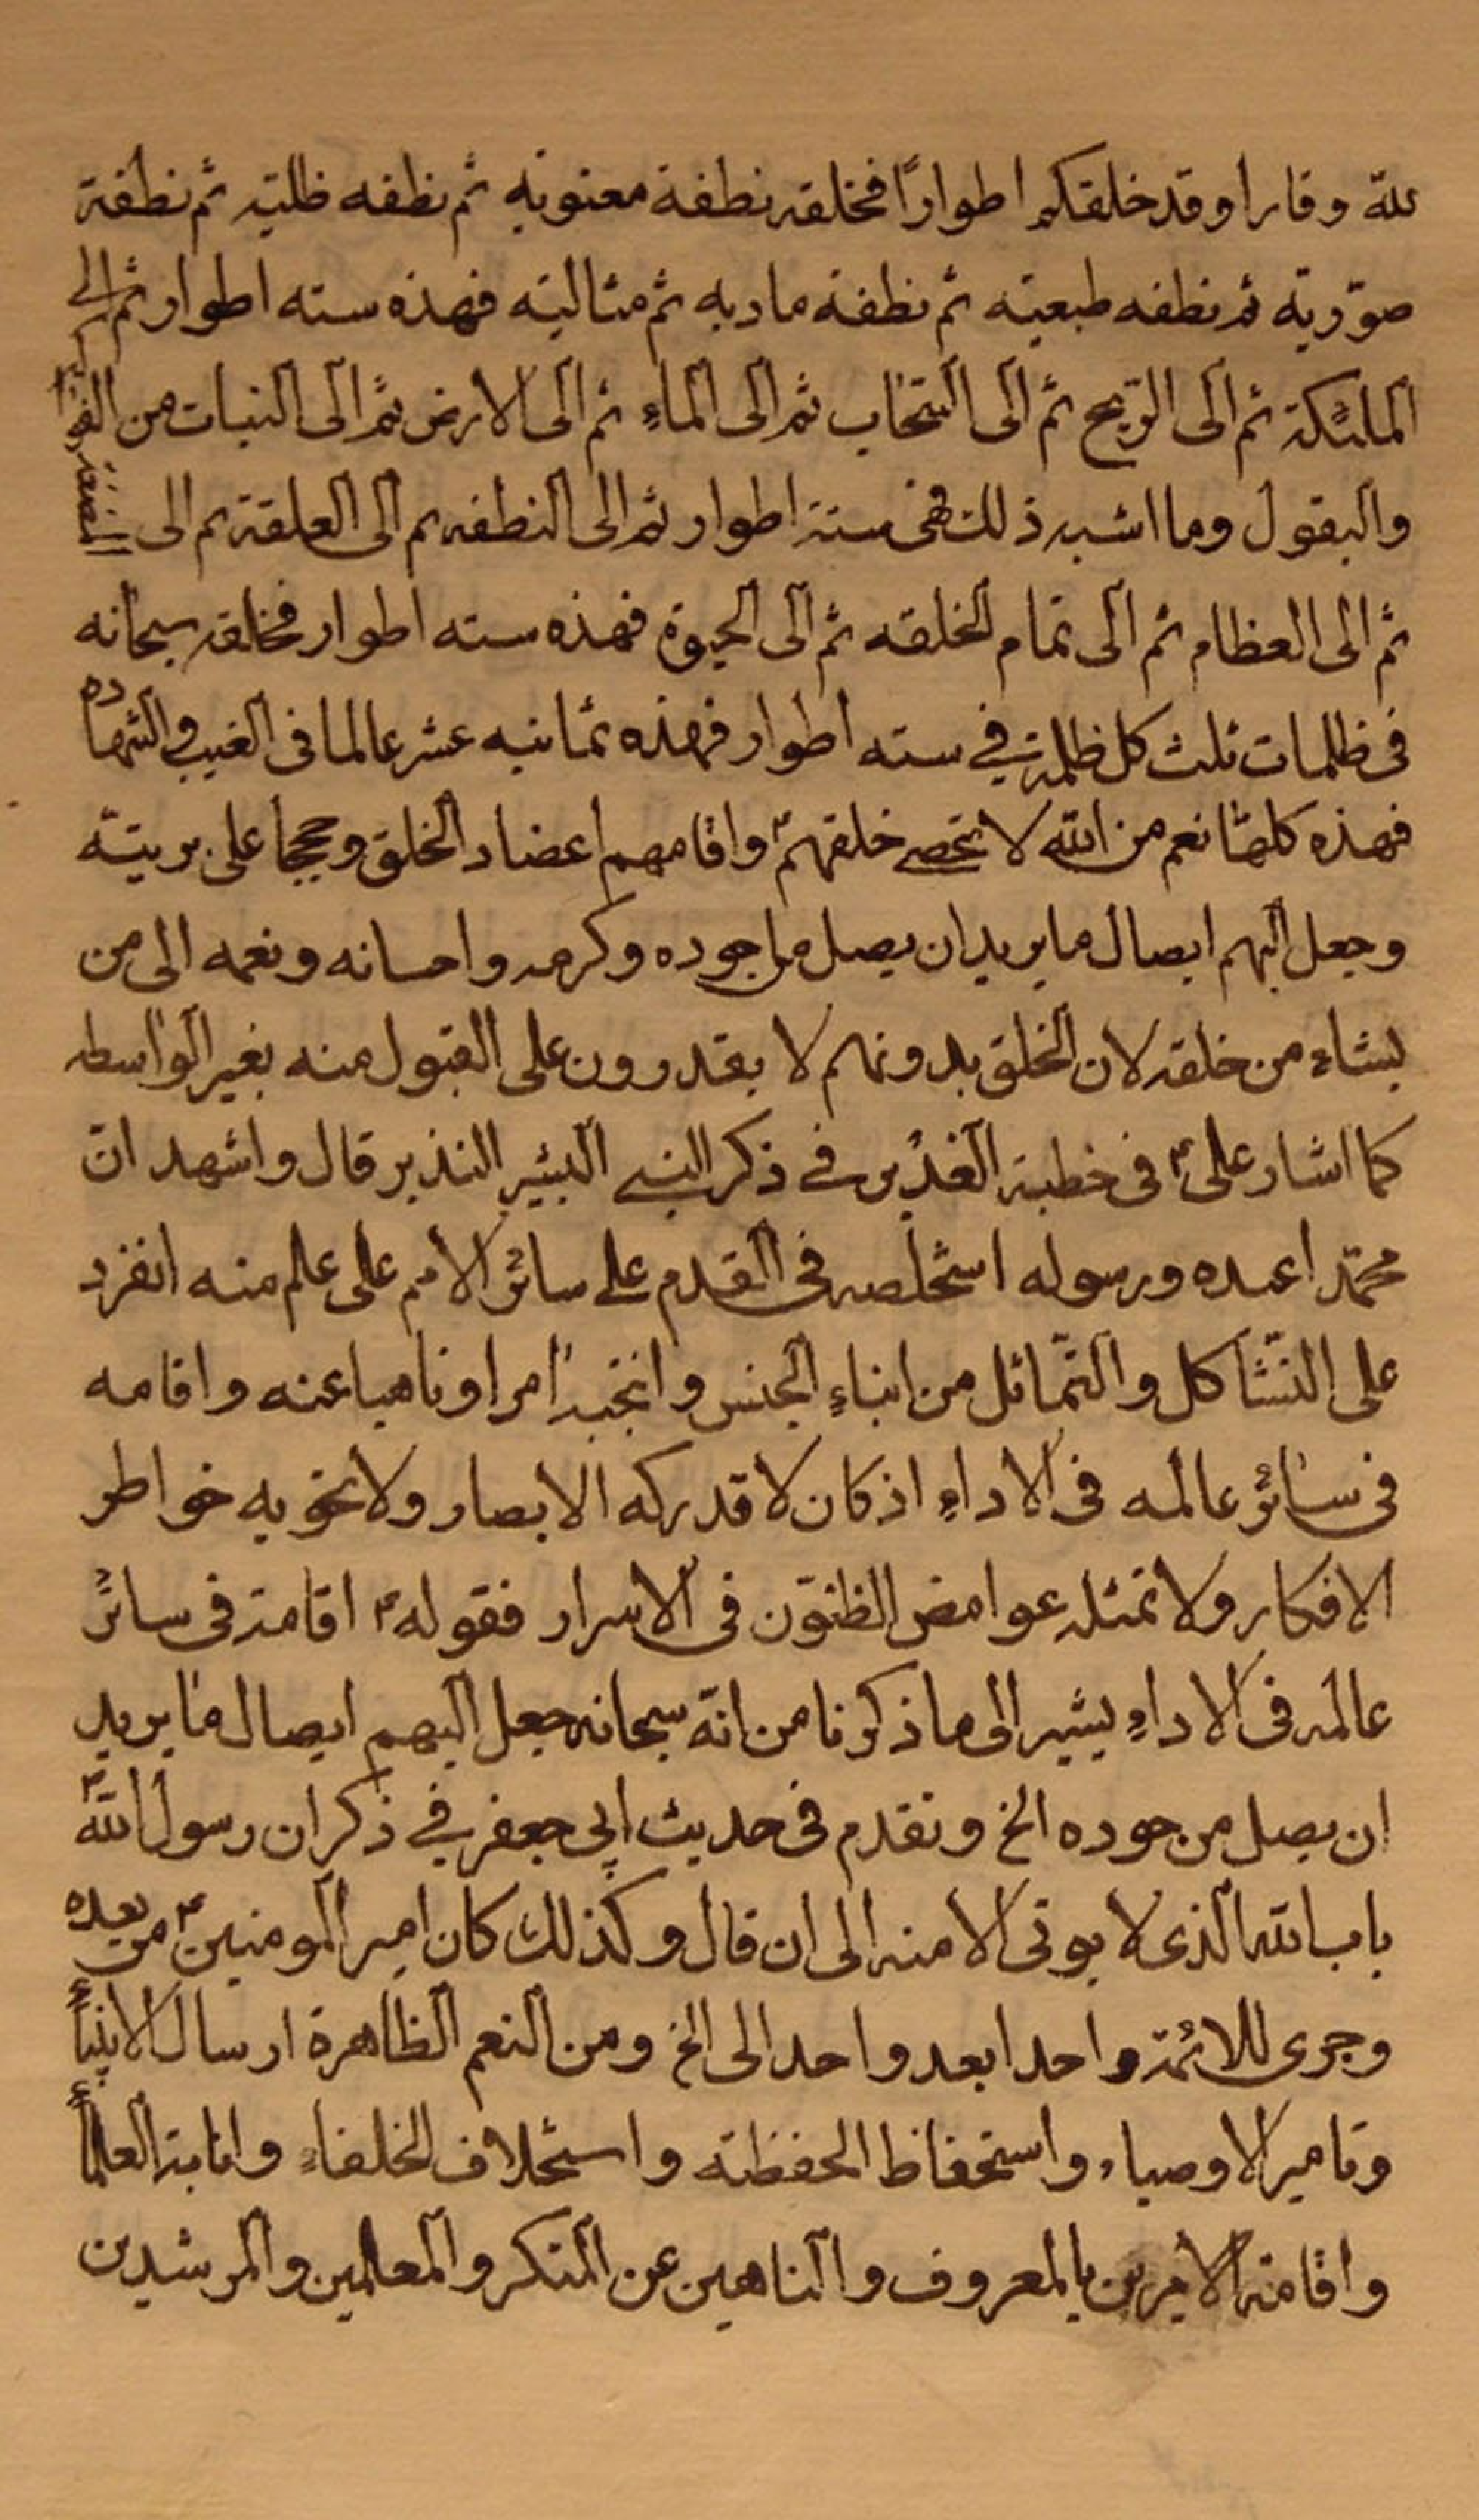 لله وقارا وقد خلقكم اطوارًا فخلقه نطفة معنويه ثم نطفه ظليه ثم نطفة
صوّريّه ثم نطفه طبعيّه ثم نطفة ماديه ثم مثاليّه فهذه سته اطوار ثم الى
الملئكة ثم الى الرّيح ثم الى السّحاب ثم الى الماءِ ثم الى الارض ثم الى النبات من
والبقول وما اشبه ذلك فهى ستة اطوار ثم الى النطفه ثم الى العلقة ثم الى المضغة
ثم الى العظام ثم الى تمام الخلقه ثم الى الحيوة فهذه سته اطوار فخلقه سبحانه
فى ظلمات ثلث كل ظلمة في سته اطوار فهذه ثمانيه عشر عالما فى الغيب و الشهاده
فهذه كلها نعم من الله لا تحصے خلقهم واقامهم اعضاد الخلق وحججا على بريته
وجعل اليهم ايصال ما يريد ان يصل من جوده وكرمه واحسانه ونعمه الى من
يشاء من خلقه لان الخلق بدونهم لا يقدرون على القبول منه بغير الواسطه
كما اشار علىؑ فى خطبة الغدير فے ذكر النبے البشير النذير قال واشهد انّ
محمّدا عبده ورسوله استخلصه فى القدم علے سائر الامم على علم منه انفرد
على التّشاكل والتّماثل من ابناءِ الجنس وانتجبه امرا وناهيا عنه واقامه
فى سائر عالمه فى الاداءِ اذ كان لا تدركه الابصار ولا تحويه خواطر
الافكار ولا تمثله عوامض الظنوّن فى الاسرار فقولهؑ اقامه فى سائر
عالمه فى الاداءِ يشير الى ما ذكرنا من انّه سبحانه جعل اليهم ايصال ما يريد
ان يصل من جوده الخ وتقدم فى حديث ابى جعفر في ذكر ان رسول اللهؐ
باب الله الذى لا يوتى الا منه الى ان قال وكذلك كان امير المومنينؑ من بعده
وجرى للائمّة واحدا بعد واحد الى الخ ومن النعم الظاهرة ارسال الانبياءِ
وتامير الاوصياء واستحفاظ الحفظته واستخلاف الخلفاءِ وانابة العلماءِ
واقامة الامرين بالمعروف والناهين عن المنكر والمعلمين والمرشدين